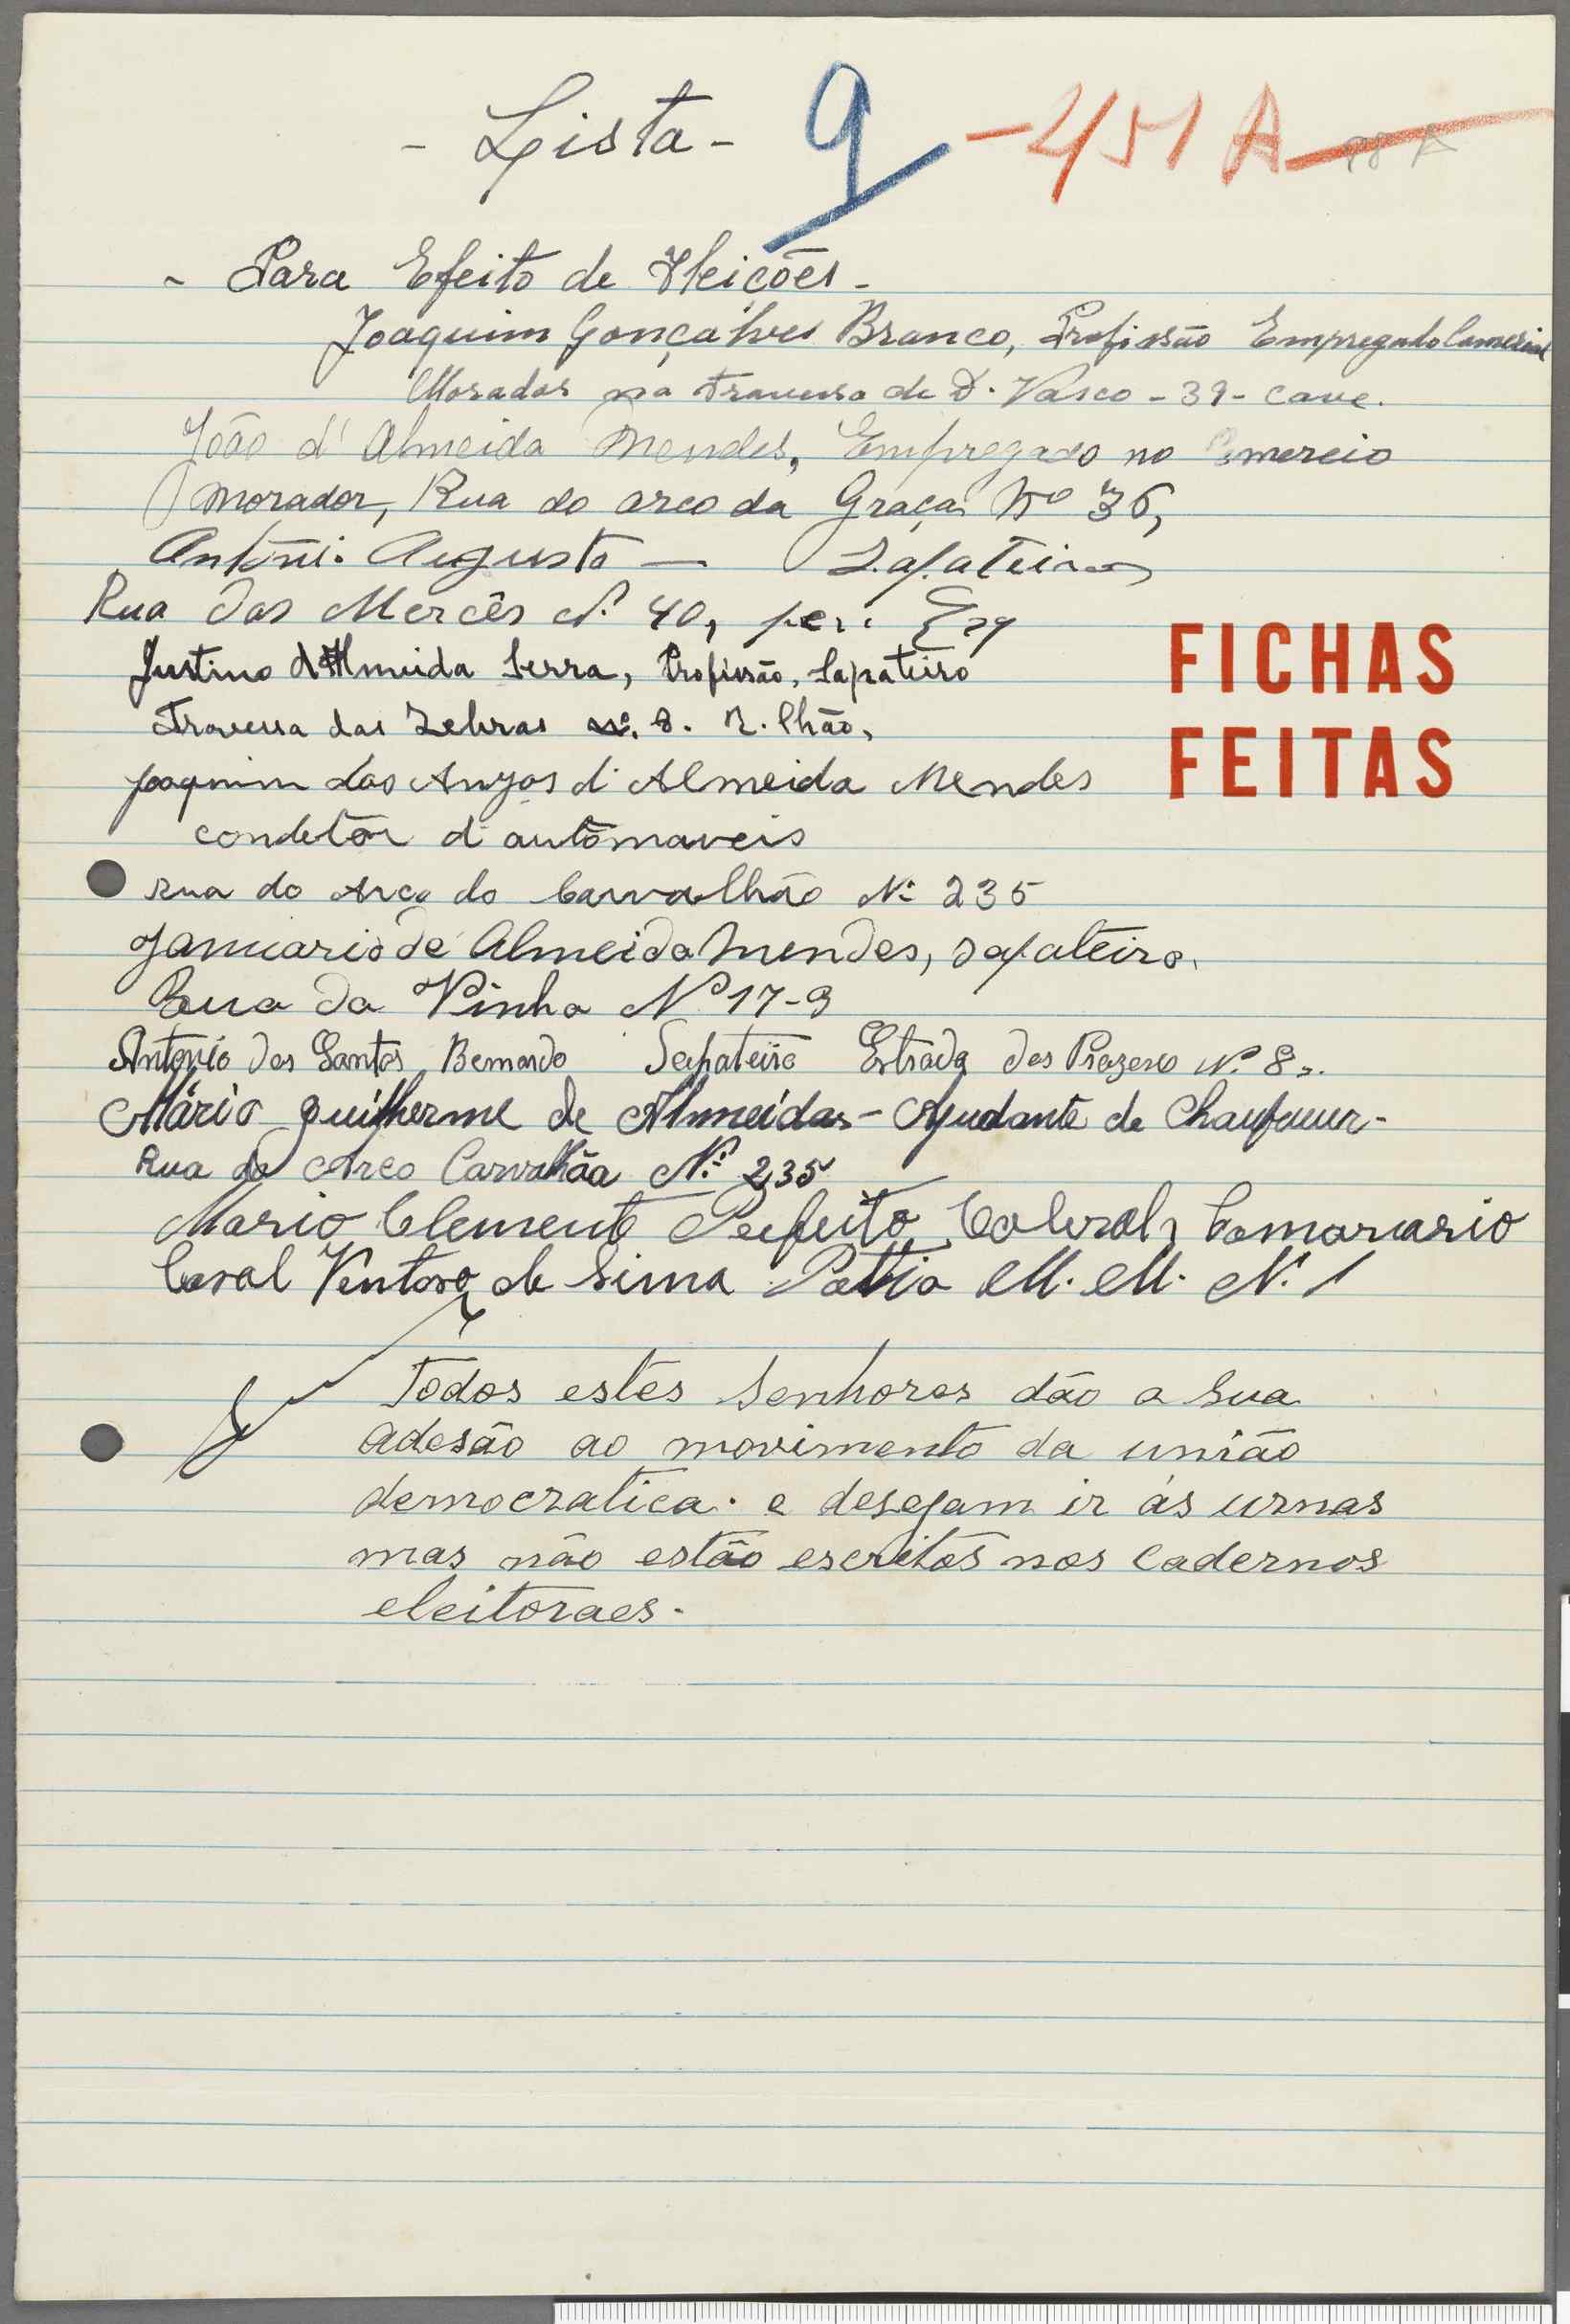 - Lista - 9 - 451 A
- Para Efeito de Eleições -
Joaquim Gonçalves Branco, Profissão Empregado Comercial
Morador na Travessa de D. Vasco - 39 - cave.
João d'Almeida Mendes, Empregado no Comercio
morador, Rua do arco da Graça Nº 36,
António Augusto — Sapateiro
Rua das Mercês Nº 40, Esq
Justino d'Almeida Serra, Profissão, Sapateiro
Travessa das Zebras nº. 8. R. Chão,
Joaquim dos Anjos d'Almeida Mendes
condetôr d'autômaveis
rua do Arco do Carvalhão Nº 235
Januario de Almeida Mendes, Sapateiro.
Rua da Vinha Nº 17-3
Antonio dos Santos Bernardo Sapateiro Estrada dos Prazeres Nº 8
Mário guilherme de Almeida - Ajudante de Chaufeuer -
Rua do Arco Carvalhão Nº 235
Mario Clemente Perfeito Cabral, Camarario
Casal Ventoso de Sima Pattio M. M. Nº 1
Todos estes Senhores dão a sua
adesão ao movimento da união
democratica. e desejam ir ás urnas
mas não estão escritos nos cadernos
eleitoraes.
FICHAS
FEITAS